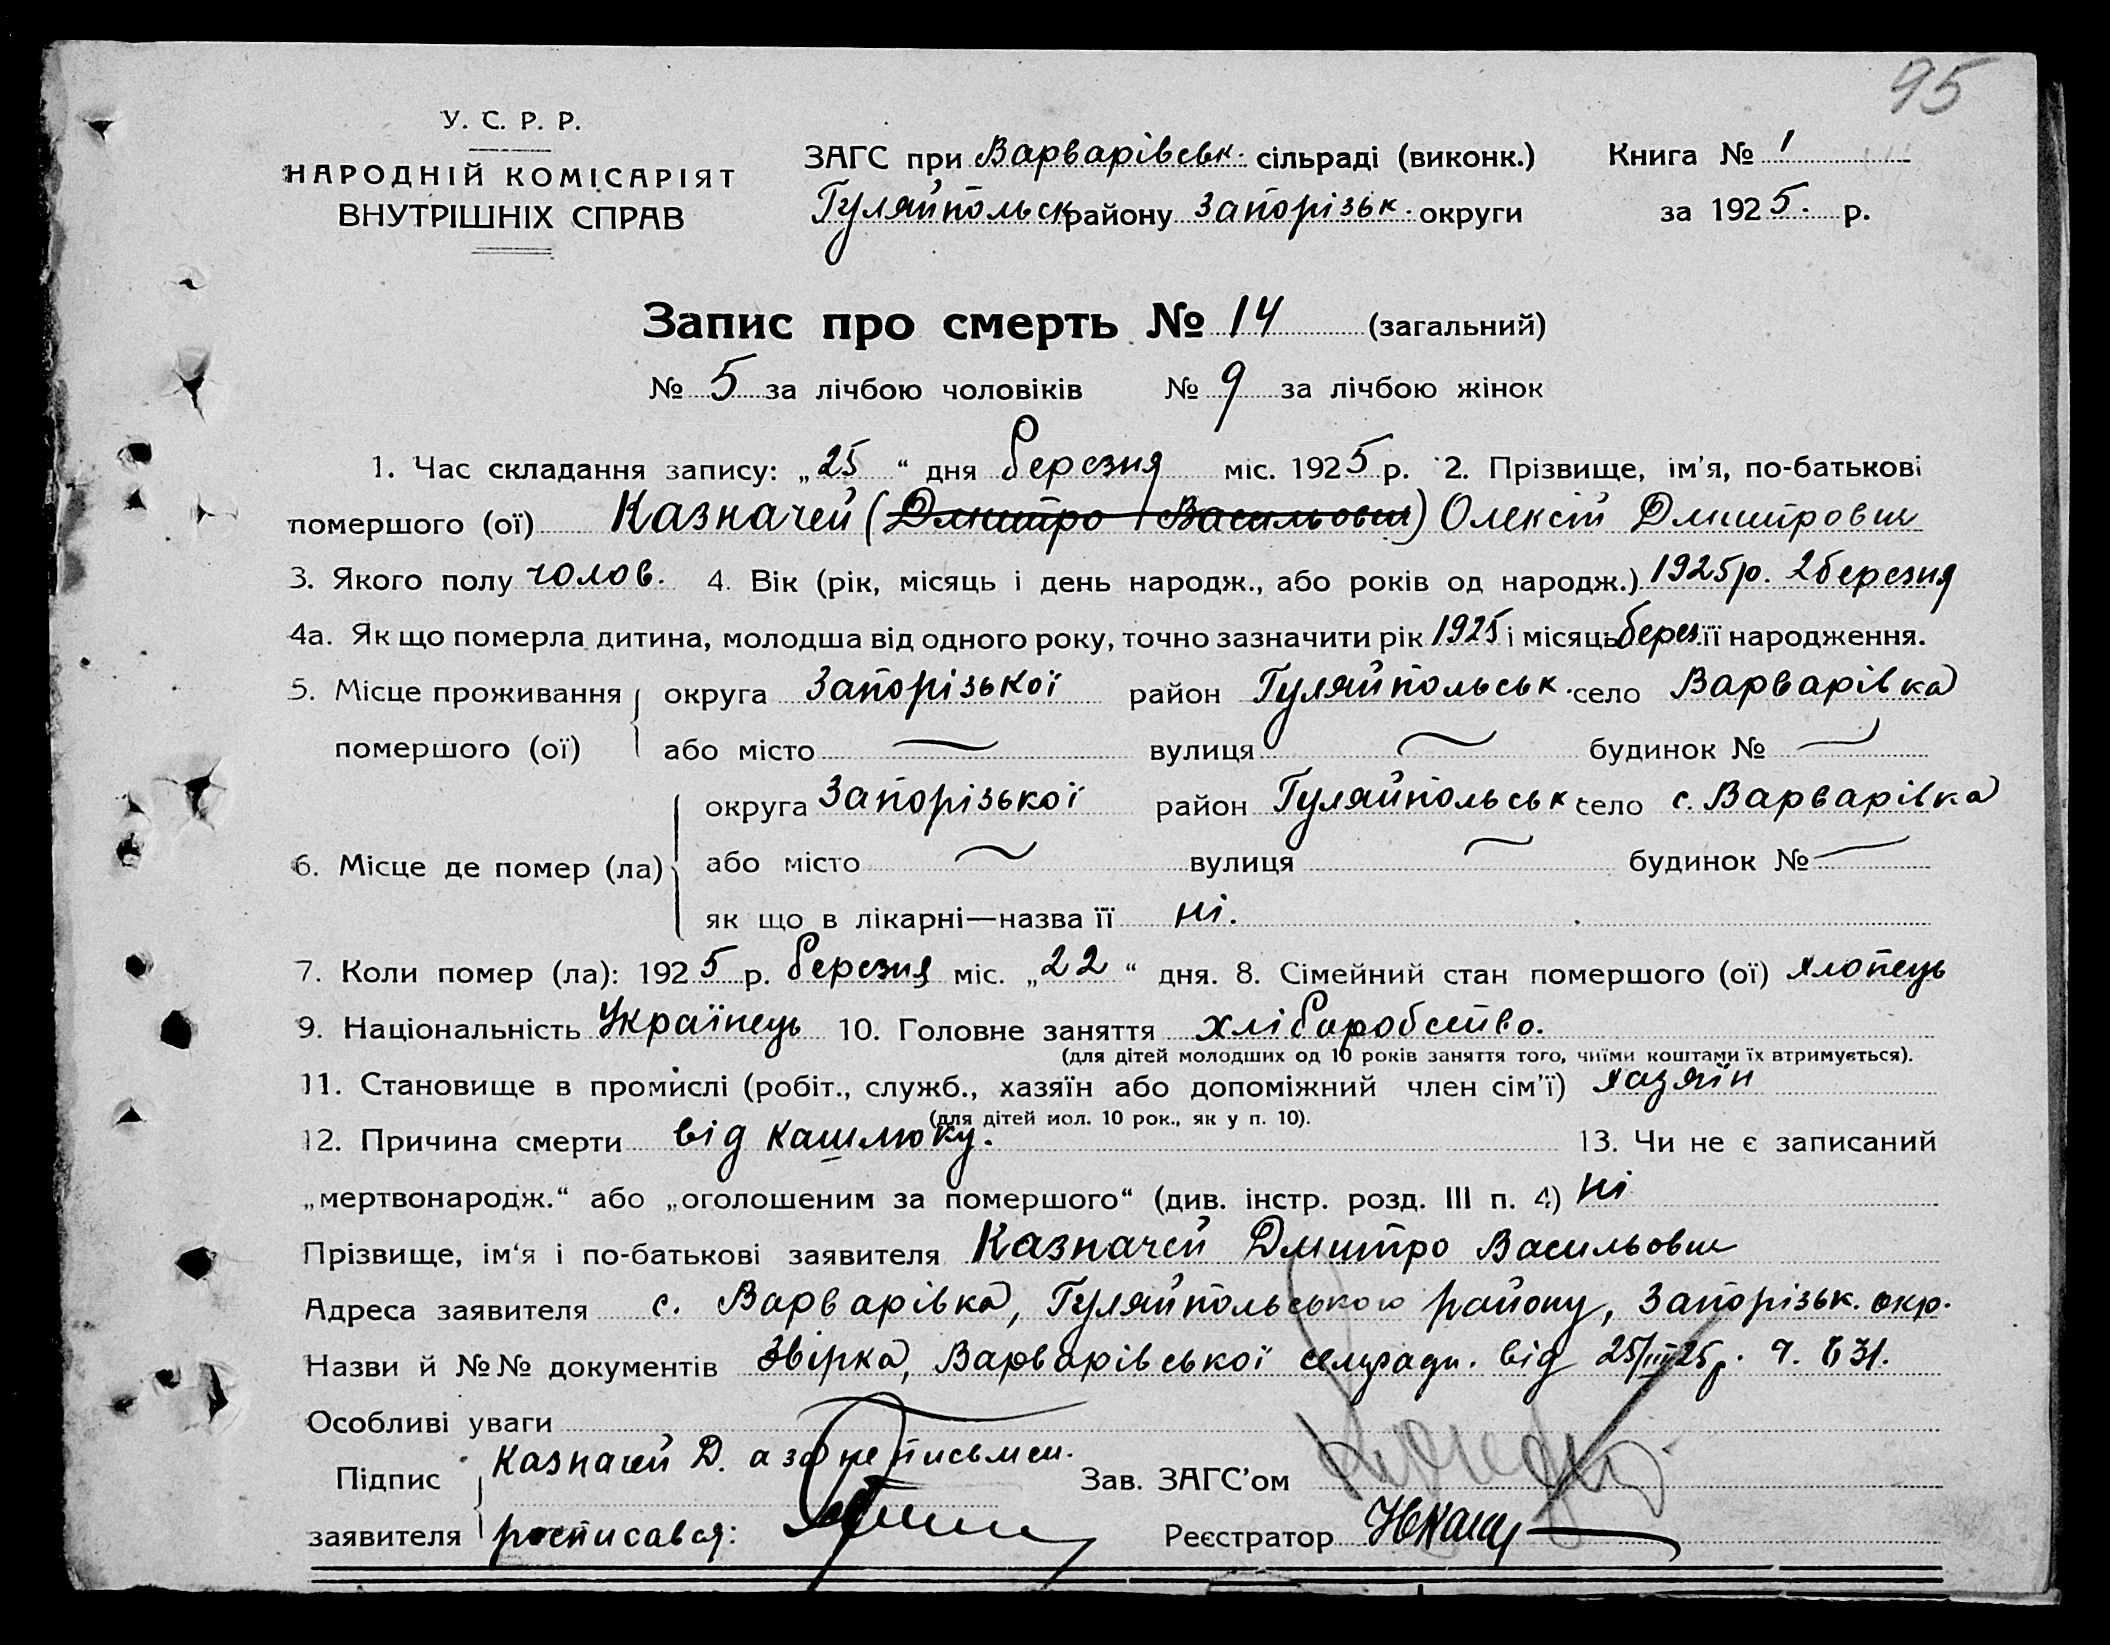 95
У. С. Р. Р.
НАРОДНІЙ КОМІСАРІЯТ
ВНУТРІШНІХ СПРАВ
ЗАГС при Варварівськ. сільраді (виконк.)
Гуляйпольськ району Запорізьк. округи
Книга № 1
за 1925. р.
Запис про смерть № 14 (загальний)
№ 5 за лічбою чоловіків № 9 за лічбою жінок
1. Час складання запису: „25“ дня березня міс. 1925 р. 2. Прізвище, ім'я, по-батькові
помершого (ої) Казначей (Дмитро Васильович) Олексій Дмитрович
3. Якого полу чолов. 4. Вік (рік, місяць і день народж., або років од народж.) 1925 р. 2 березня
4а. Як що померла дитина, молодша від одного року, точно зазначити рік 1925 і місяць берез. її народження.
5. Місце проживання округа Запорізької район Гуляйпольськ. село Варварівка
помершого (ої) або місто вулиця будинок №
округа Запорізької район Гуляйпольськ село с. Варварівка
6. Місце де помер (ла) або місто вулиця будинок №
як що в лікарні—назва її ні.
7. Коли помер (ла): 1925 р. березня міс. „22“ дня. 8. Сімейний стан помершого (ої) хлопець
9. Національність Українець 10. Головне заняття хліборобство.
(для дітей молодших од 10 років заняття того, чиїми коштами їх втримується).
11. Становище в промислі (робіт., служб., хазяїн або допоміжний член сім'ї) хазяїн
(для дітей мол. 10 рок., як у п. 10).
12. Причина смерти від кашлюку. 13. Чи не є записаний
„мертвонародж.“ або „оголошеним за помершого“ (див. інстр. розд. III п. 4) ні
Прізвище, ім'я і по-батькові заявителя Казначей Дмитро Васильович
Адреса заявителя с. Варварівка, Гуляйпольського району, Запорізьк. окр.
Назви й №№ документів Звірка, Варварівської сельради. від 25/III 25 р. ч. 631.
Особливі уваги
Підпис Казначей Д. а за не письмен.
Зав. ЗАГС'ом
заявителя росписався:
Реєстратор